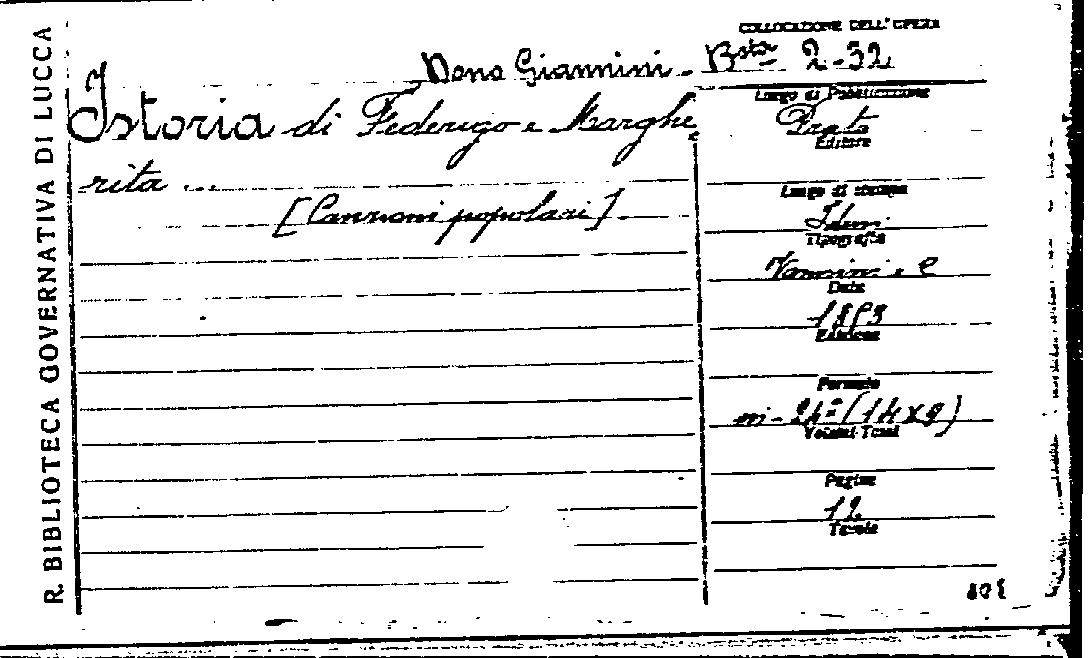 R. BIBLIOTECA GOVERNATIVA DI LUCCA
COLLOCAZIONE DELL'OPERA
Dono Giannini - Bsta 2-32
Istoria di Federigo e Marghe
rita ...
[Canzoni popolari].
Luogo di Pubblicazione
Prato
Editore
Luogo di stampa
Idem
Tipografia
Vannini e C
Data
1893
Edizione
Formato
in-24º (14x9)
Volumi-Tomi
Pagine
12
Tavole